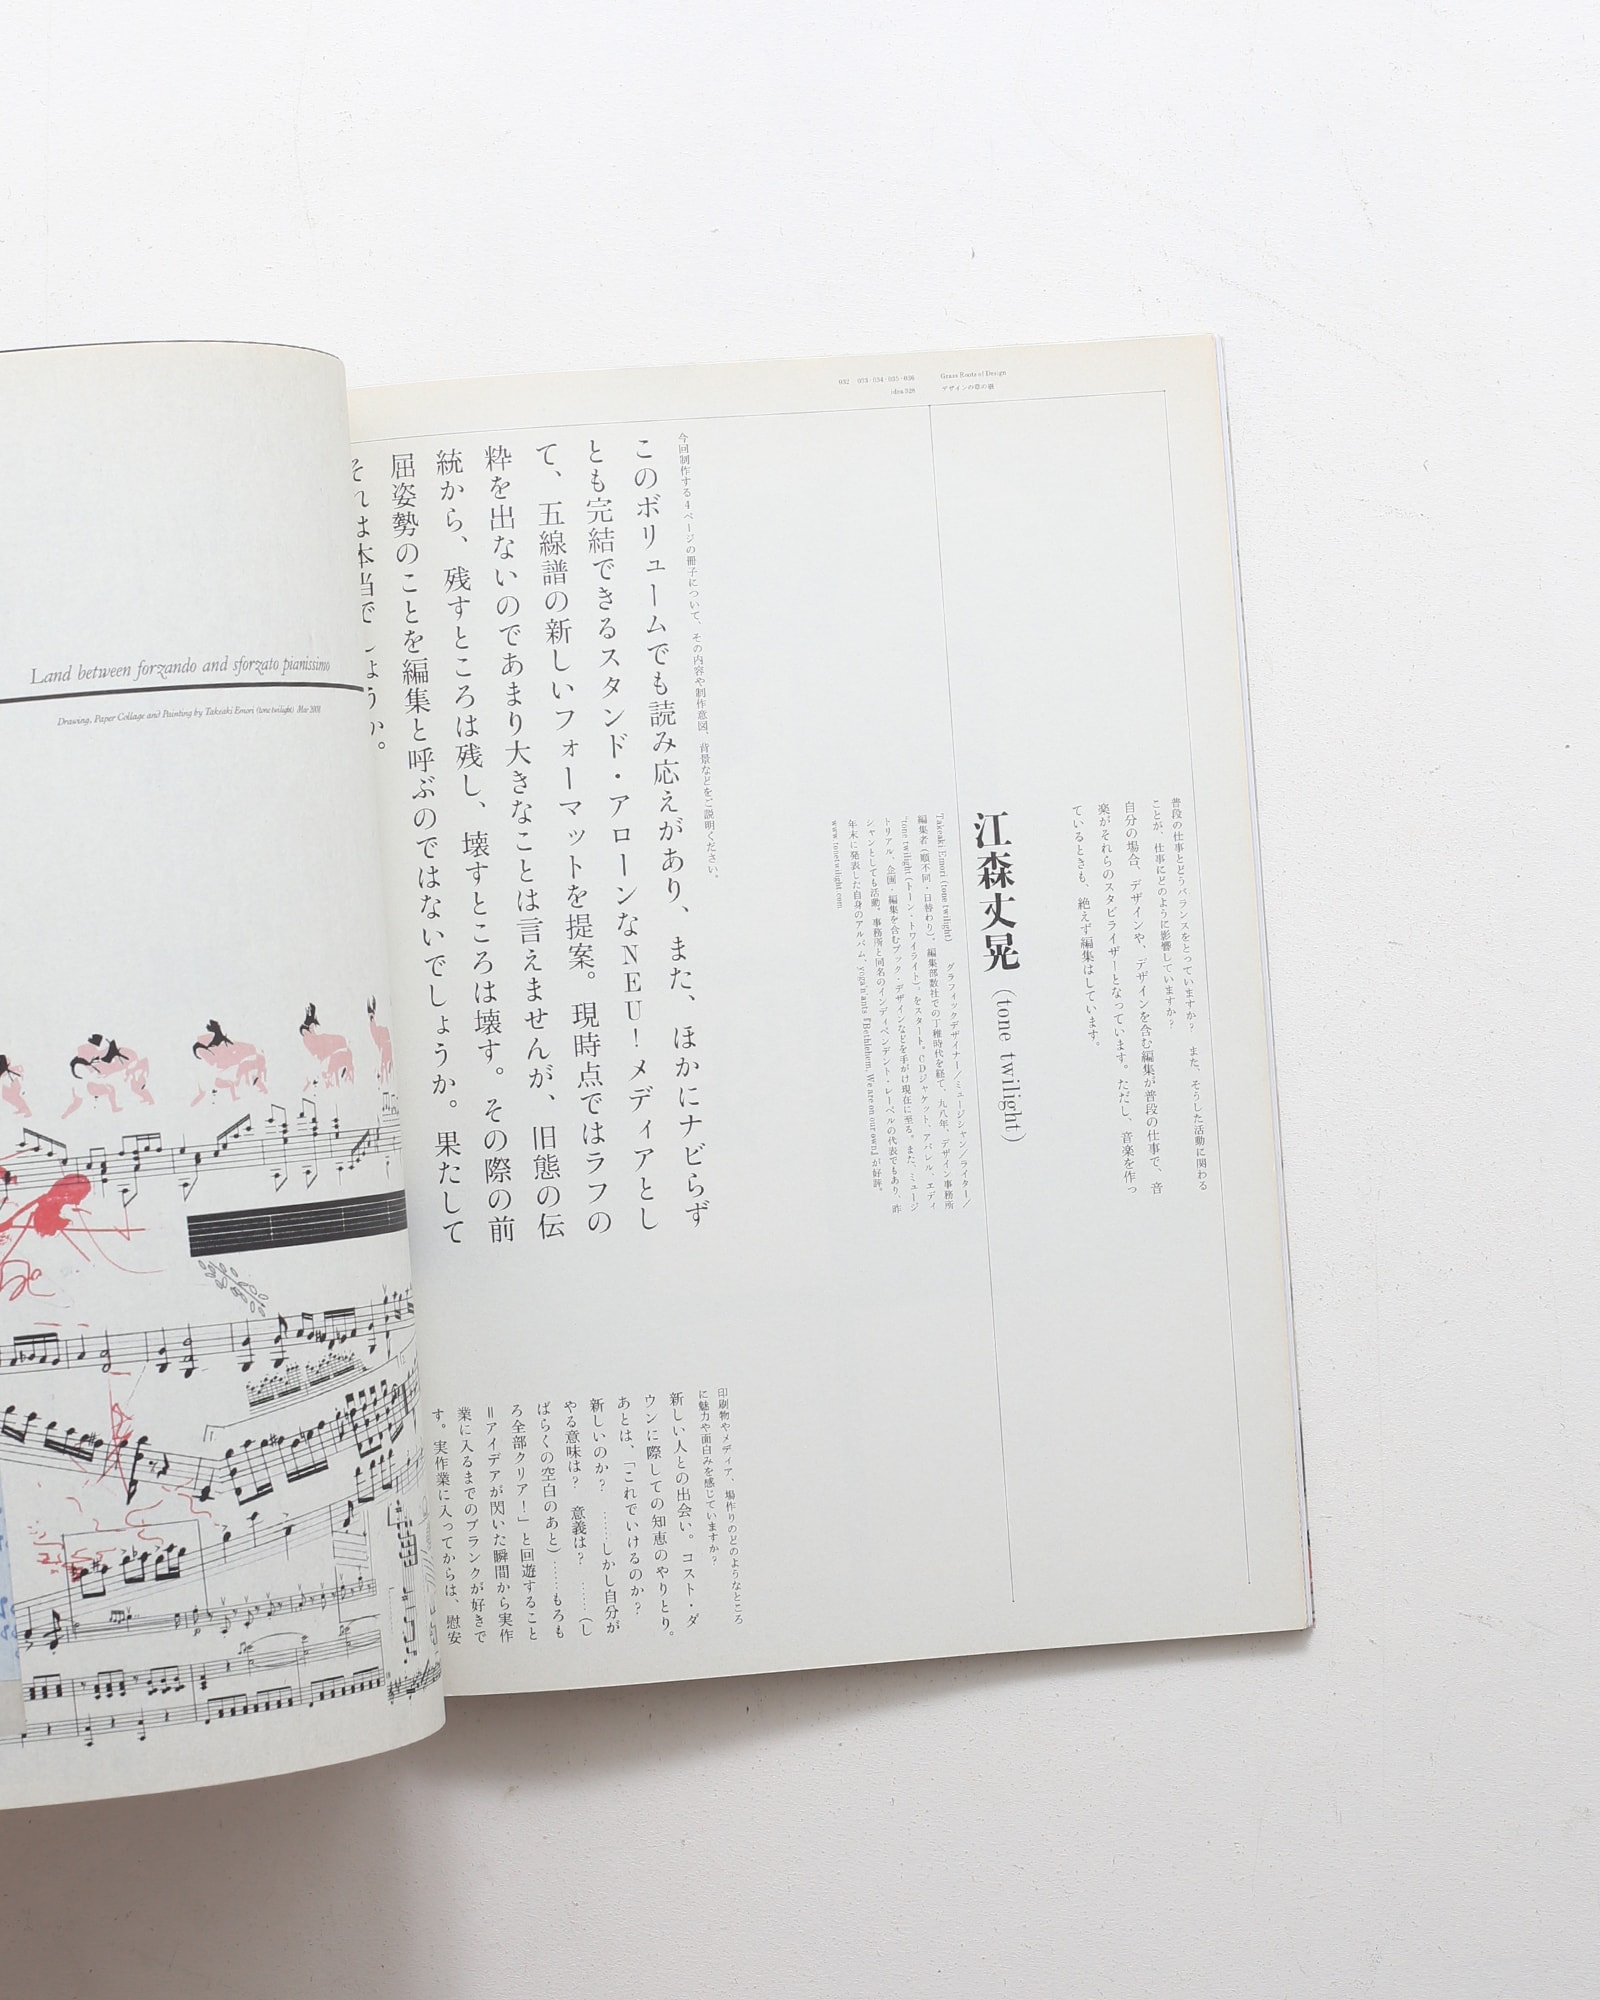 Land between forzando and sforzato pianissimo
Drawing, Paper Collage and Painting by Takeaki Emori (tone twilight) Mar 2008
032 · 033 · 034 · 035 · 036
idea 328
Grass Roots of Design
デザインの草の根
普段の仕事とどうバランスをとっていますか? また、そうした活動に関わる
ことが、仕事にどのように影響していますか?
自分の場合、デザインや、デザインを含む編集が普段の仕事で、音
楽がそれらのスタビライザーとなっています。ただし、音楽を作っ
ているときも、絶えず編集はしています。
江森丈晃(tone twilight)
Takeaki Emori (tone twilight) グラフィックデザイナー/ミュージシャン/ライター/
編集者(順不同・日替わり)。編集部数社での丁稚時代を経て、九八年、デザイン事務所
"tone twilight(トーン・トワイライト)"をスタート。CDジャケット、アパレル、エディ
トリアル、企画・編集を含むブック・デザインなどを手がけ現在に至る。また、ミュージ
シャンとしても活動。事務所と同名のインディペンデント・レーベルの代表でもあり、昨
年末に発表した自身のアルバム、yoga'n'ants『Bethlehem, We are on our own』が好評。
www.tonetwilight.com
今回制作する4ページの冊子について、その内容や制作意図、背景などをご説明ください。
このボリュームでも読み応えがあり、また、ほかにナビらず
とも完結できるスタンド・アローンなNEU!メディアとし
て、五線譜の新しいフォーマットを提案。現時点ではラフの
粋を出ないのであまり大きなことは言えませんが、旧態の伝
統から、残すところは残し、壊すところは壊す。その際の前
屈姿勢のことを編集と呼ぶのではないでしょうか。果たして
それは本当でしょうか。
印刷物やメディア、場作りのどのようなところ
に魅力や面白みを感じていますか?
新しい人との出会い。コスト・ダ
ウンに際しての知恵のやりとり。
あとは、「これでいけるのか?
新しいのか? ……しかし自分が
やる意味は? 意義は? ……(し
ばらくの空白のあと)……もろも
ろ全部クリア!」と回遊すること
=アイデアが閃いた瞬間から実作
業に入るまでのブランクが好きで
す。実作業に入ってからは、慰安